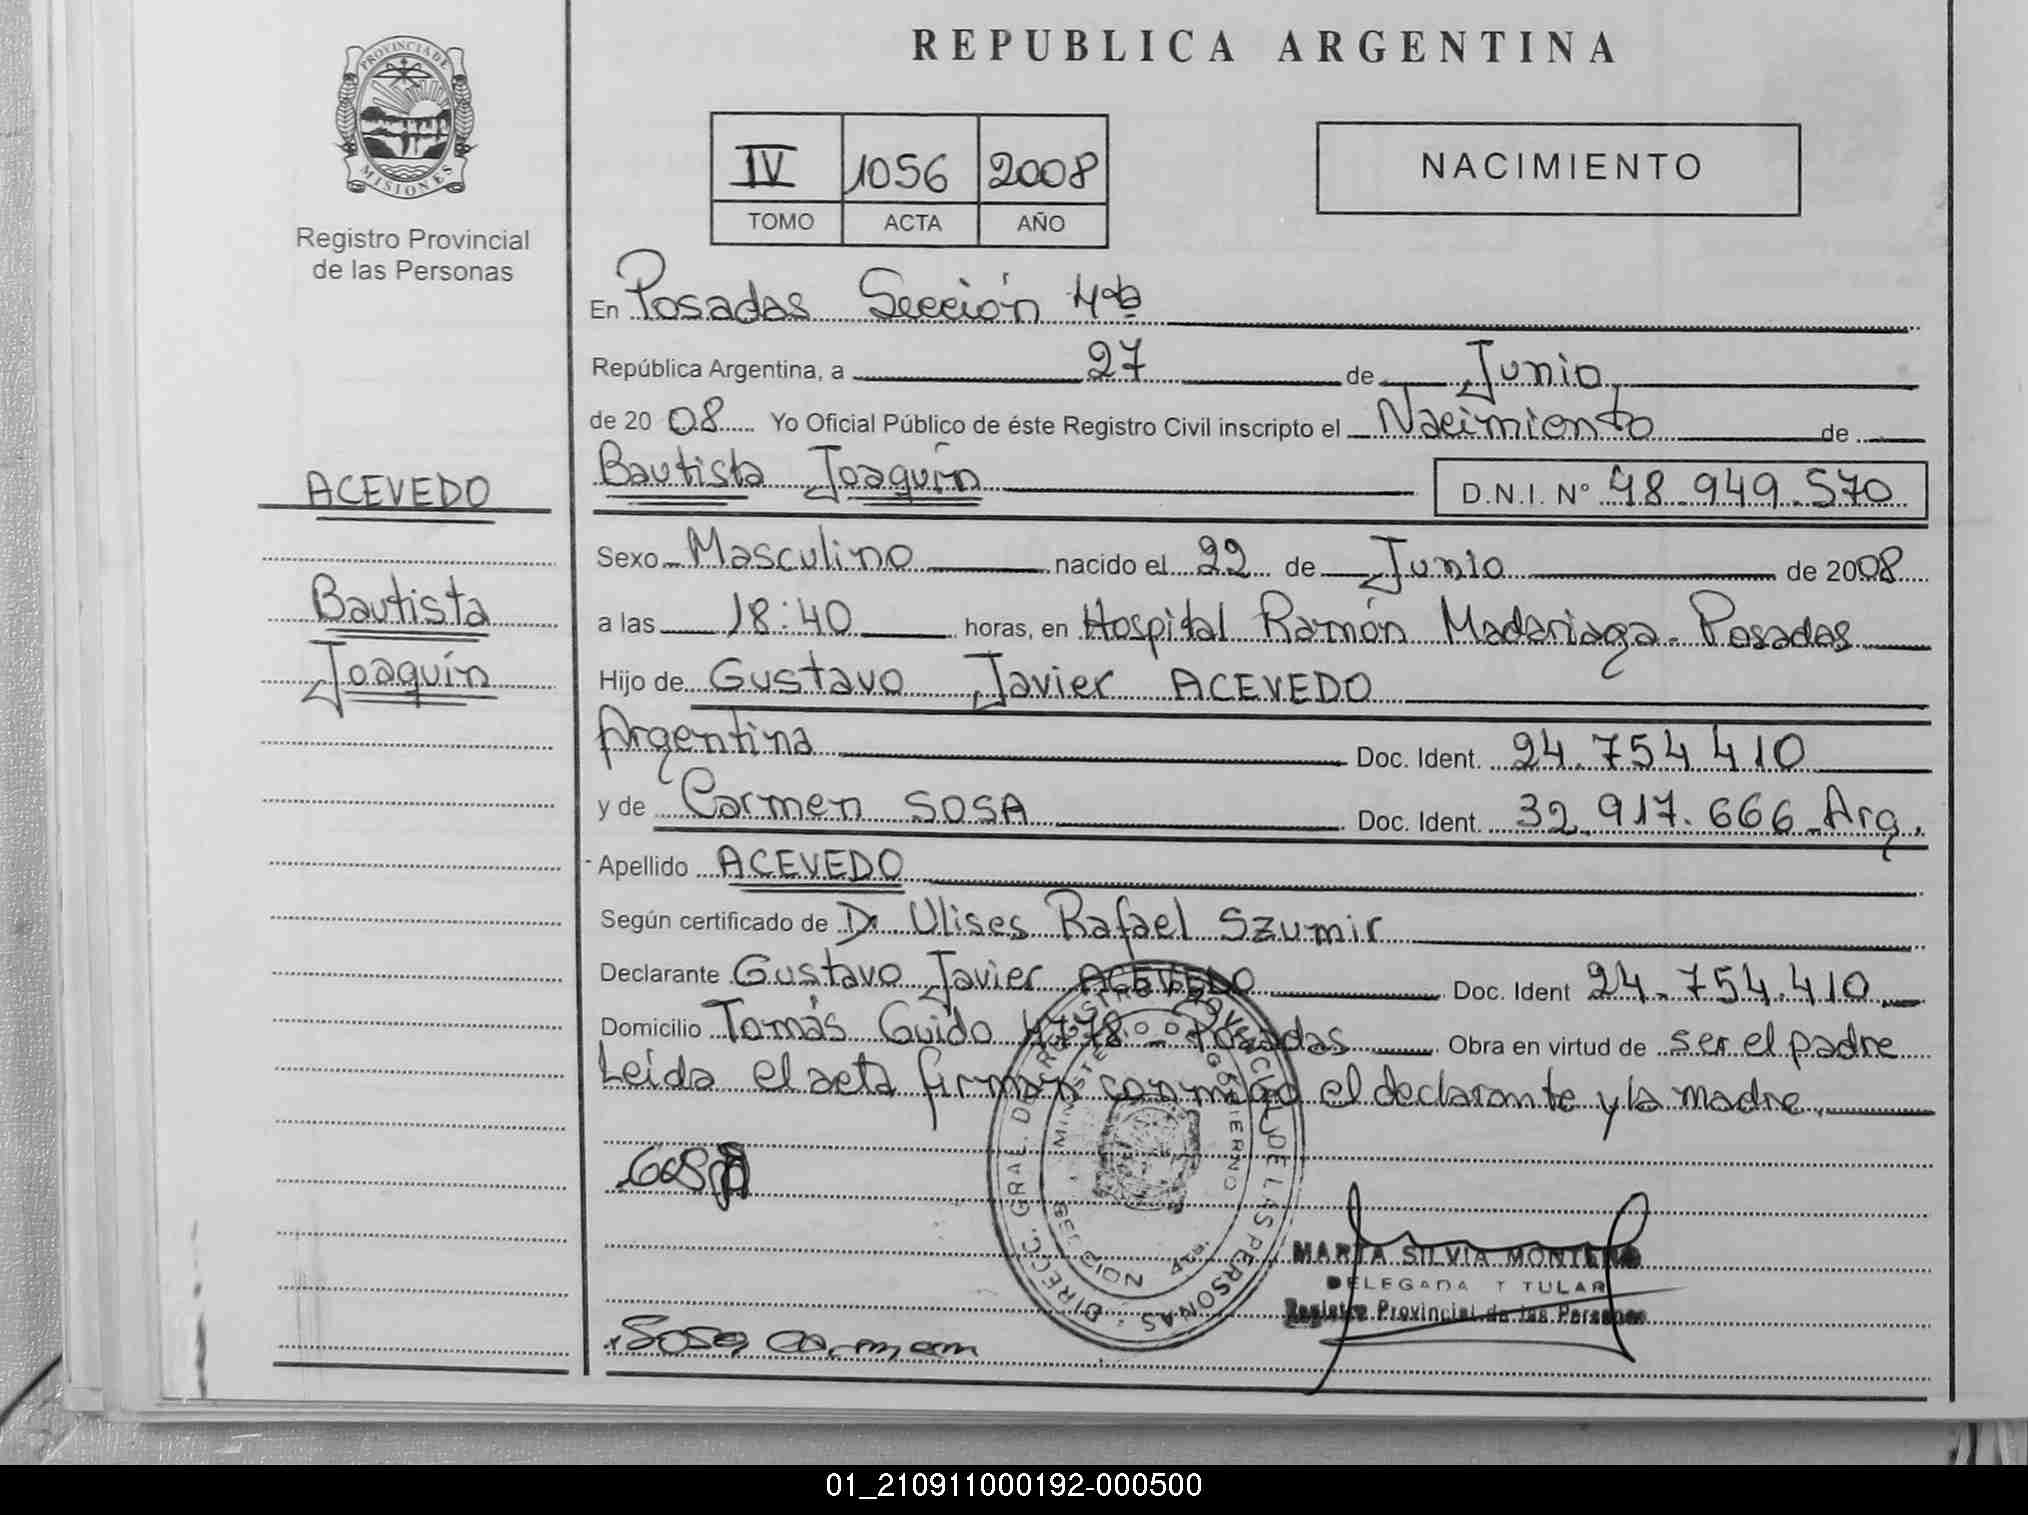 REPUBLICA ARGENTINA
PROVINCIA DE
MISIONES
Registro Provincial
de las Personas
IV 1056 2008
TOMO ACTA AÑO
NACIMIENTO
En Posadas Sección 4ta
República Argentina, a 27 de Junio
de 20 08 Yo Oficial Público de éste Registro Civil inscripto el Nacimiento de
Bautista Joaquín D.N.I. Nº 48.949.570
ACEVEDO
Bautista
Joaquín
Sexo Masculino nacido el 22 de Junio de 2008
a las 18:40 horas, en Hospital Ramón Madariaga - Posadas
Hijo de Gustavo Javier ACEVEDO
Argentina Doc. Ident. 24.754.410
y de Carmen SOSA Doc. Ident. 32.917.666 Arg.
Apellido ACEVEDO
Según certificado de Dr Ulises Rafael Szumir
Declarante Gustavo Javier ACEVEDO Doc. Ident 24.754.410
Domicilio Tomás Guido 4778 - Posadas Obra en virtud de ser el padre
Leida el acta firman conmigo el declarante y la madre.
DIRECC. GRAL. DEL REGISTRO PROVINCIAL DE LAS PERSONAS
MINISTERIO DE GOBIERNO
MARTA SILVIA MONTERO
DELEGADA TITULAR
Registro Provincial de las Personas
Sosa Carmen
01_210911000192-000500